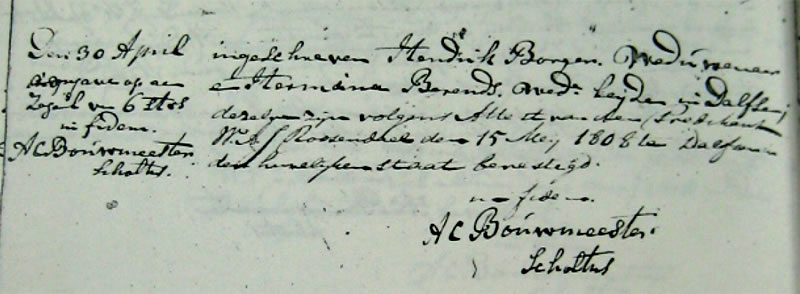 Den 30 April
aangave op een
Zegul van 6 sts
in fidem.
A C Bouwmeester
Scholtus.
ingeschreven Hendrik Borger. Weduwenaar
e Hermina Berends. Wed: beyden in Dalfsen,
dezelve zijn volgens Attest van den Predikant
W. A. Roosendael den 15 Mey 1808 te Dalfsen in
den huwelyken staat bevestigd.
in fidem.
A C Bouwmeester.
Scholtus